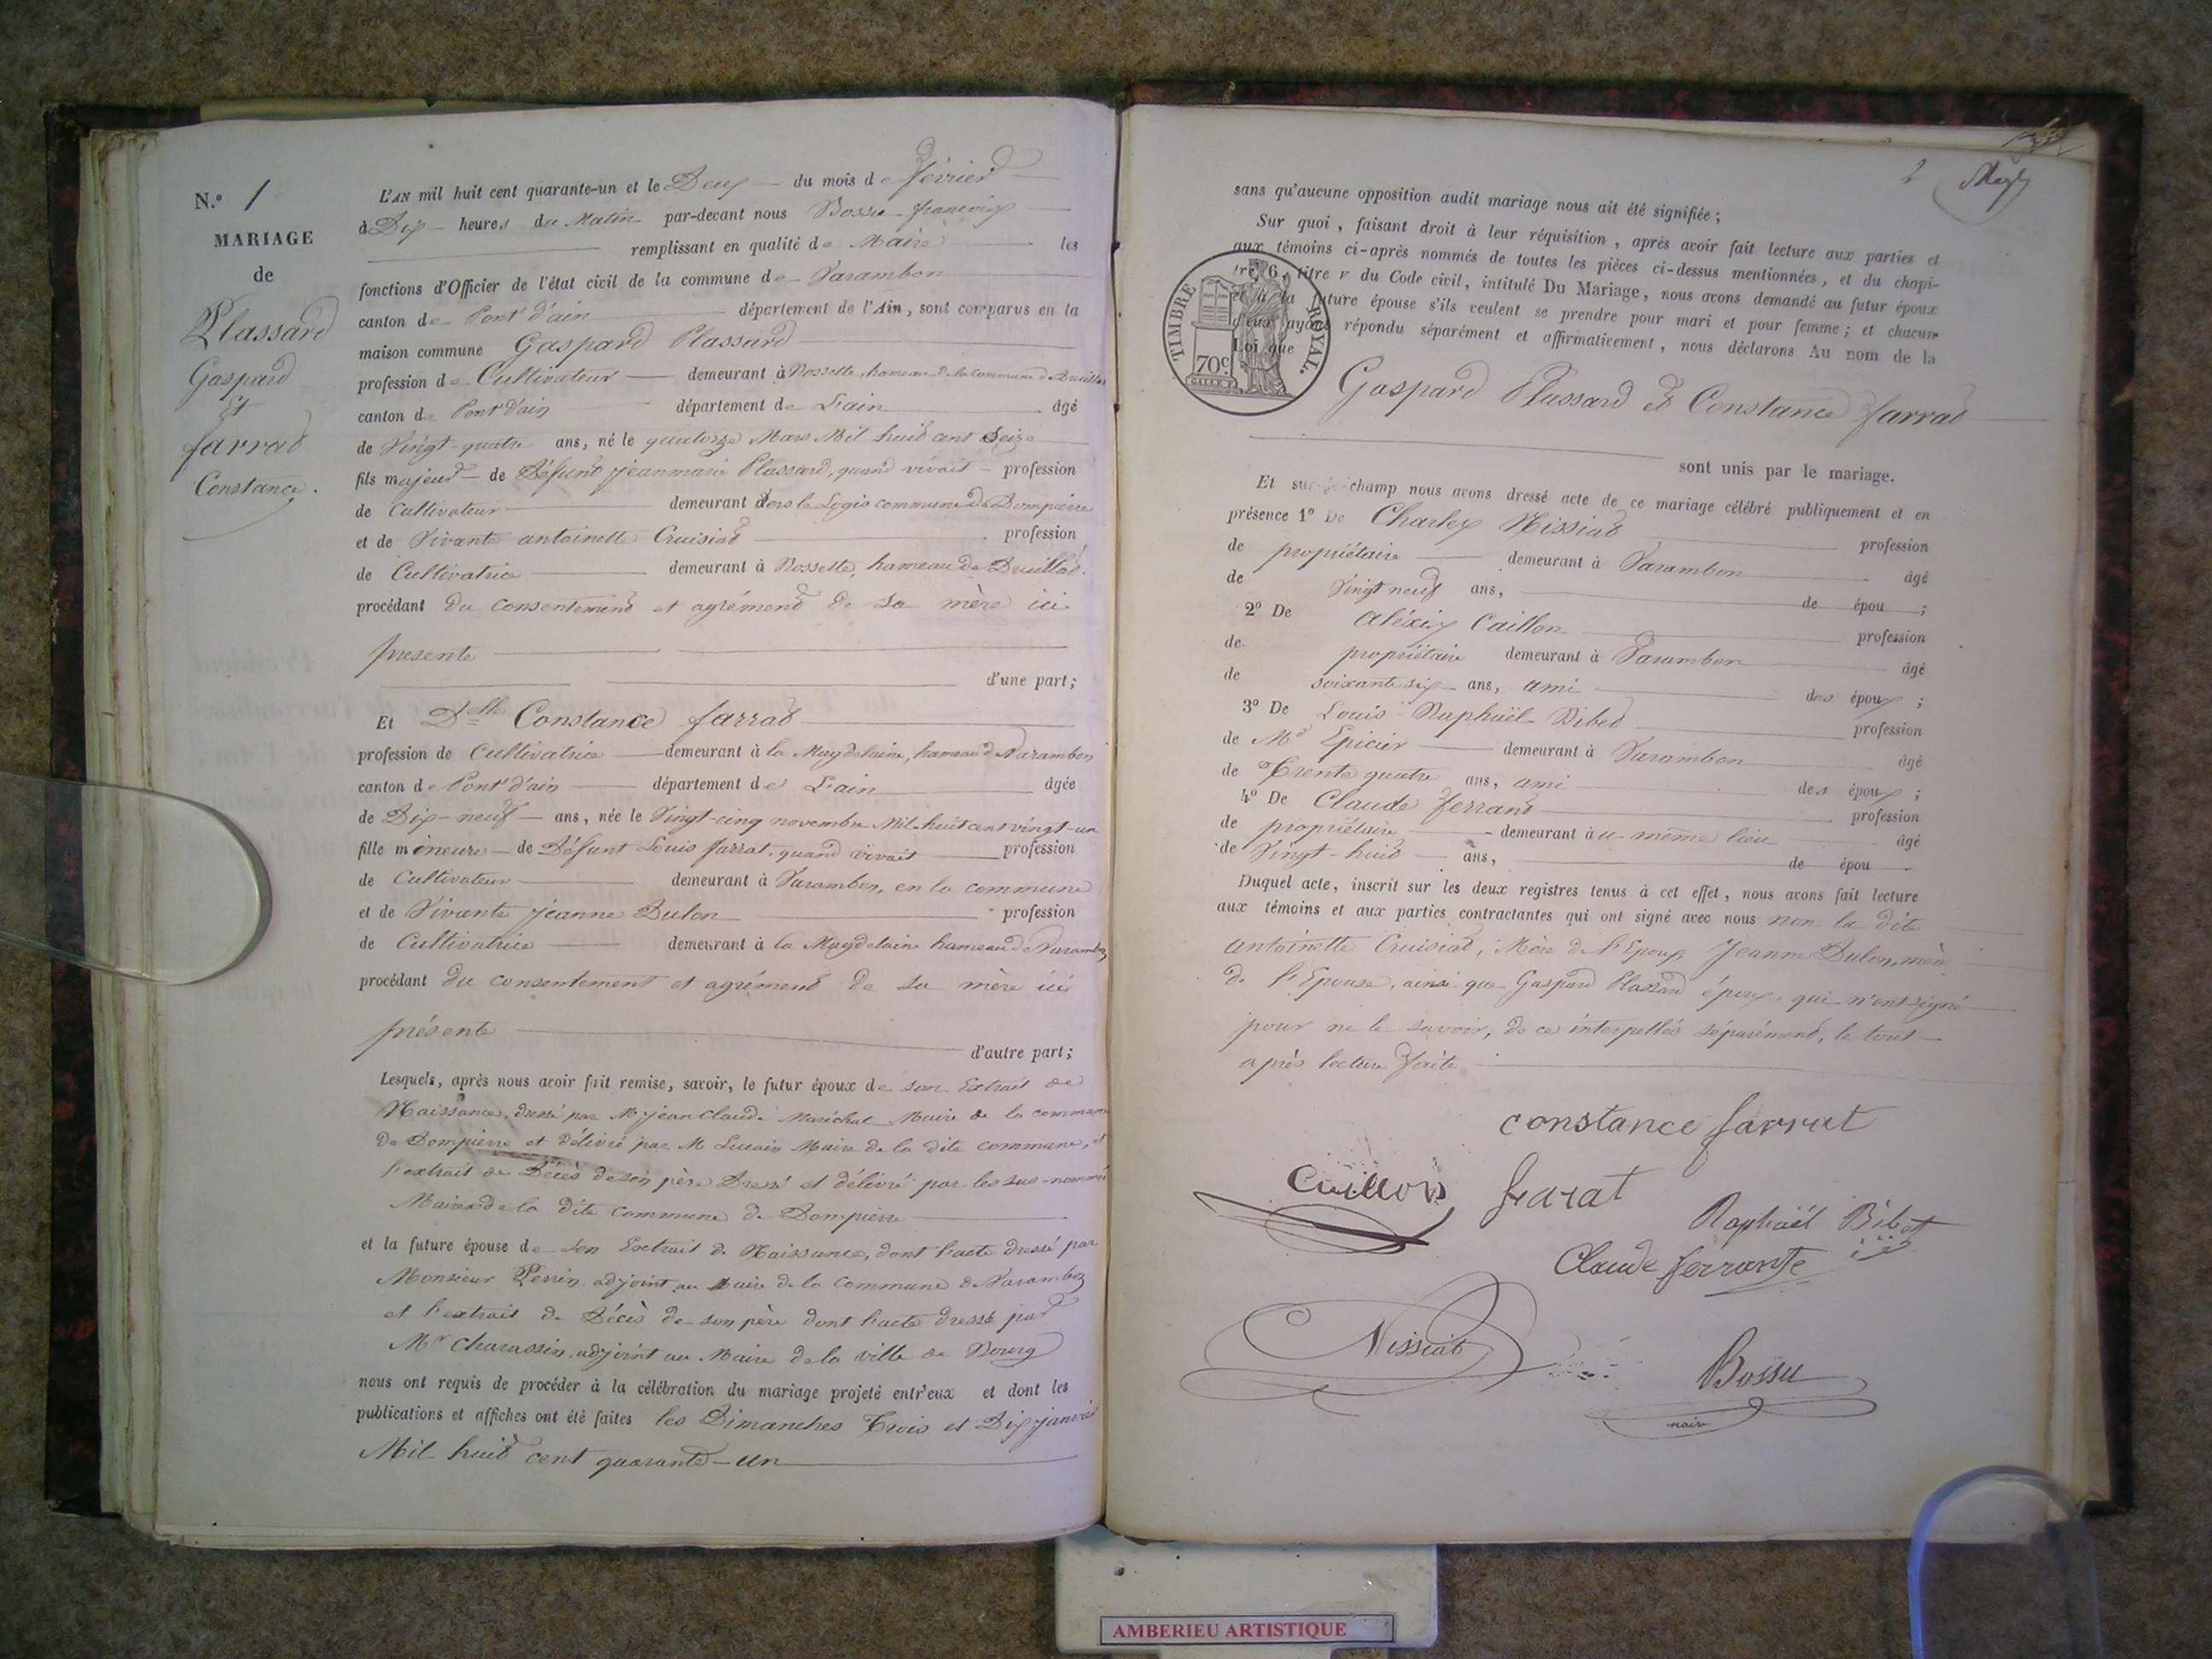 N.º 1
MARIAGE
de
Plassard
Gaspard
Et
Jarrat
Constance.
L'AN mil huit cent quarante-un et le Deux du mois de février
à Dix heures du Matin par-devant nous Bossu françois
remplissant en qualité de Maire les
fonctions d'Officier de l'état civil de la commune de Varambon
canton de Pont d'ain département de l'Ain, sont comparus en la
maison commune Gaspard Plassard
profession de Cultivateur demeurant à Rossette, hameau de la commune de Druillat
canton de Pont d'ain département de L'ain âgé
de Vingt-quatre ans, né le quatorze Mars Mil huit cent Seize
fils majeur de Défunt Jeanmarie Plassard, quand vivait profession
de Cultivateur demeurant vers le Logis commune de Dompierre
et de Vivante antoinette Cruisiat profession
de Cultivatrice demeurant à Rossette, hameau de Druillat.
procédant du consentement et agrément de sa mère ici
presente
d'une part;
Et Delle Constance Jarrat
profession de Cultivatrice demeurant à la Magdelaine, hameau de Varambon
canton de Pont d'ain département de L'ain âgée
de Dix-neuf ans, née le Vingt-cinq novembre Mil-huit cent vingt-un
fille mineure de Défunt Louis Jarrat, quand vivait profession
de Cultivateur demeurant à Varambon, en la commune
et de Vivante Jeanne Dulon profession
de Cultivatrice demeurant à la Magdelaine hameau de Varambon
procédant du consentement et agrément de sa mère ici
présente
d'autre part;
Lesquels, après nous avoir fait remise, savoir, le futur époux de son Extrait de
Naissance, dressé par M Jean Claude Maréchal Maire de la commune
de Dompierre et délivré par M Maire de la dite commune, et
l'extrait de Décès de son père Dressé et délivré par les sus-nommés
Maires de la dite commune de Dompierre
et la future épouse de son Extrait de Naissance, dont l'acte dressé par
Monsieur Perrin adjoint au Maire de la commune de Varambon
et l'extrait de Décès de son père dont l'acte dressé par
Mr Charassin adjoint au Maire de la ville de Bourg
nous ont requis de procéder à la célébration du mariage projeté entr'eux et dont les
publications et affiches ont été faites les Dimanches Trois et Dix janvier
Mil huit cent quarante-un
2
sans qu'aucune opposition audit mariage nous ait été signifiée;
Sur quoi, faisant droit à leur réquisition, après avoir fait lecture aux parties et
aux témoins ci-après nommés de toutes les pièces ci-dessus mentionnées, et du chapi-
tre 6, titre v du Code civil, intitulé Du Mariage, nous avons demandé au futur époux
et à la future épouse s'ils veulent se prendre pour mari et pour femme; et chacun
d'eux ayant répondu séparément et affirmativement, nous déclarons Au nom de la
Loi que
TIMBRE ROYAL.
70c.
Gaspard Plassard et Constance Jarrat
sont unis par le mariage.
Et sur-le-champ nous avons dressé acte de ce mariage célébré publiquement et en
présence 1º De Charles Nissiat profession
de propriétaire demeurant à Varambon âgé
de Vingt neuf ans, de épou ;
2º De Aléxis Caillon profession
de propriétaire demeurant à Varambon âgé
de soixante six ans, ami des époux ;
3º De Louis Raphaël Bibet profession
de Md Epicier demeurant à Varambon âgé
de Trente quatre ans, ami des époux ;
4º De Claude ferrand profession
de propriétaire demeurant à u même lieu âgé
de Vingt-huit ans, de épou .
Duquel acte, inscrit sur les deux registres tenus à cet effet, nous avons fait lecture
aux témoins et aux parties contractantes qui ont signé avec nous non la dite
antoinette Cruisiat, Mère de l'Epoux, Jeanne Dulon, mère
de l'Epouse, ainsi que Gaspard Plassard époux, qui n'ont signé
pour ne le savoir, de ce interpellés séparément, le tout
après lecture faite
constance farrat
Caillon farat
Raphaël Bibet
Claude ferrante
Nissiat
Bossu
maire
AMBERIEU ARTISTIQUE